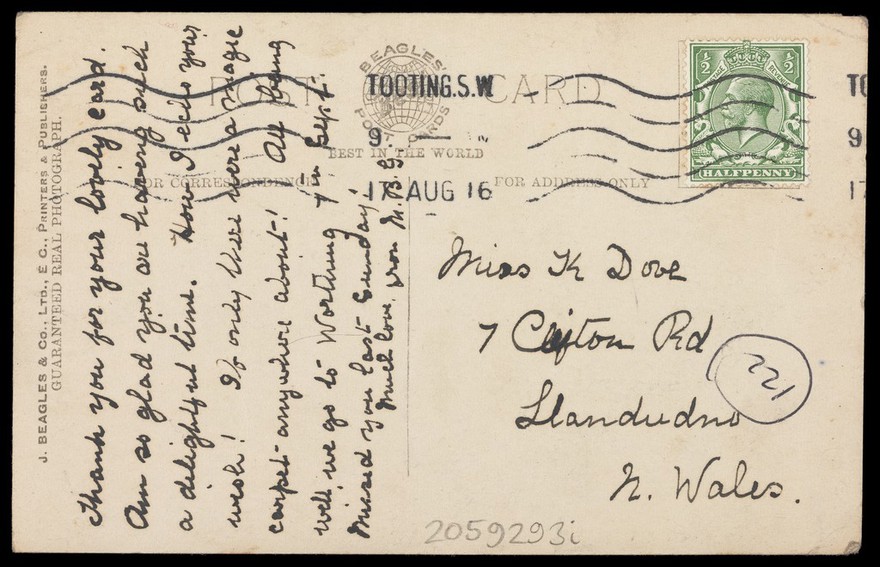 J. BEAGLES & CO., LTD., E.C., PRINTERS & PUBLISHERS.
GUARANTEED REAL PHOTOGRAPH.
POST CARD
BEAGLES'
POST CARDS
BEST IN THE WORLD
FOR CORRESPONDENCE
FOR ADDRESS ONLY
TOOTING.S.W
9.
17 AUG 16
TO
9
17
½ ½
HALFPENNY
Thank you for your lovely card.
Am so glad you are having such
a delightful time. How I echo your
wish! If only there were a magic
carpet anywhere about! All being
well, we go to Worthing in Sept.
Missed you last Sunday.
Much love, from M.B.G.
Miss K Dove
7 Clifton Rd
Llandudno
N. Wales.
122
2059293i